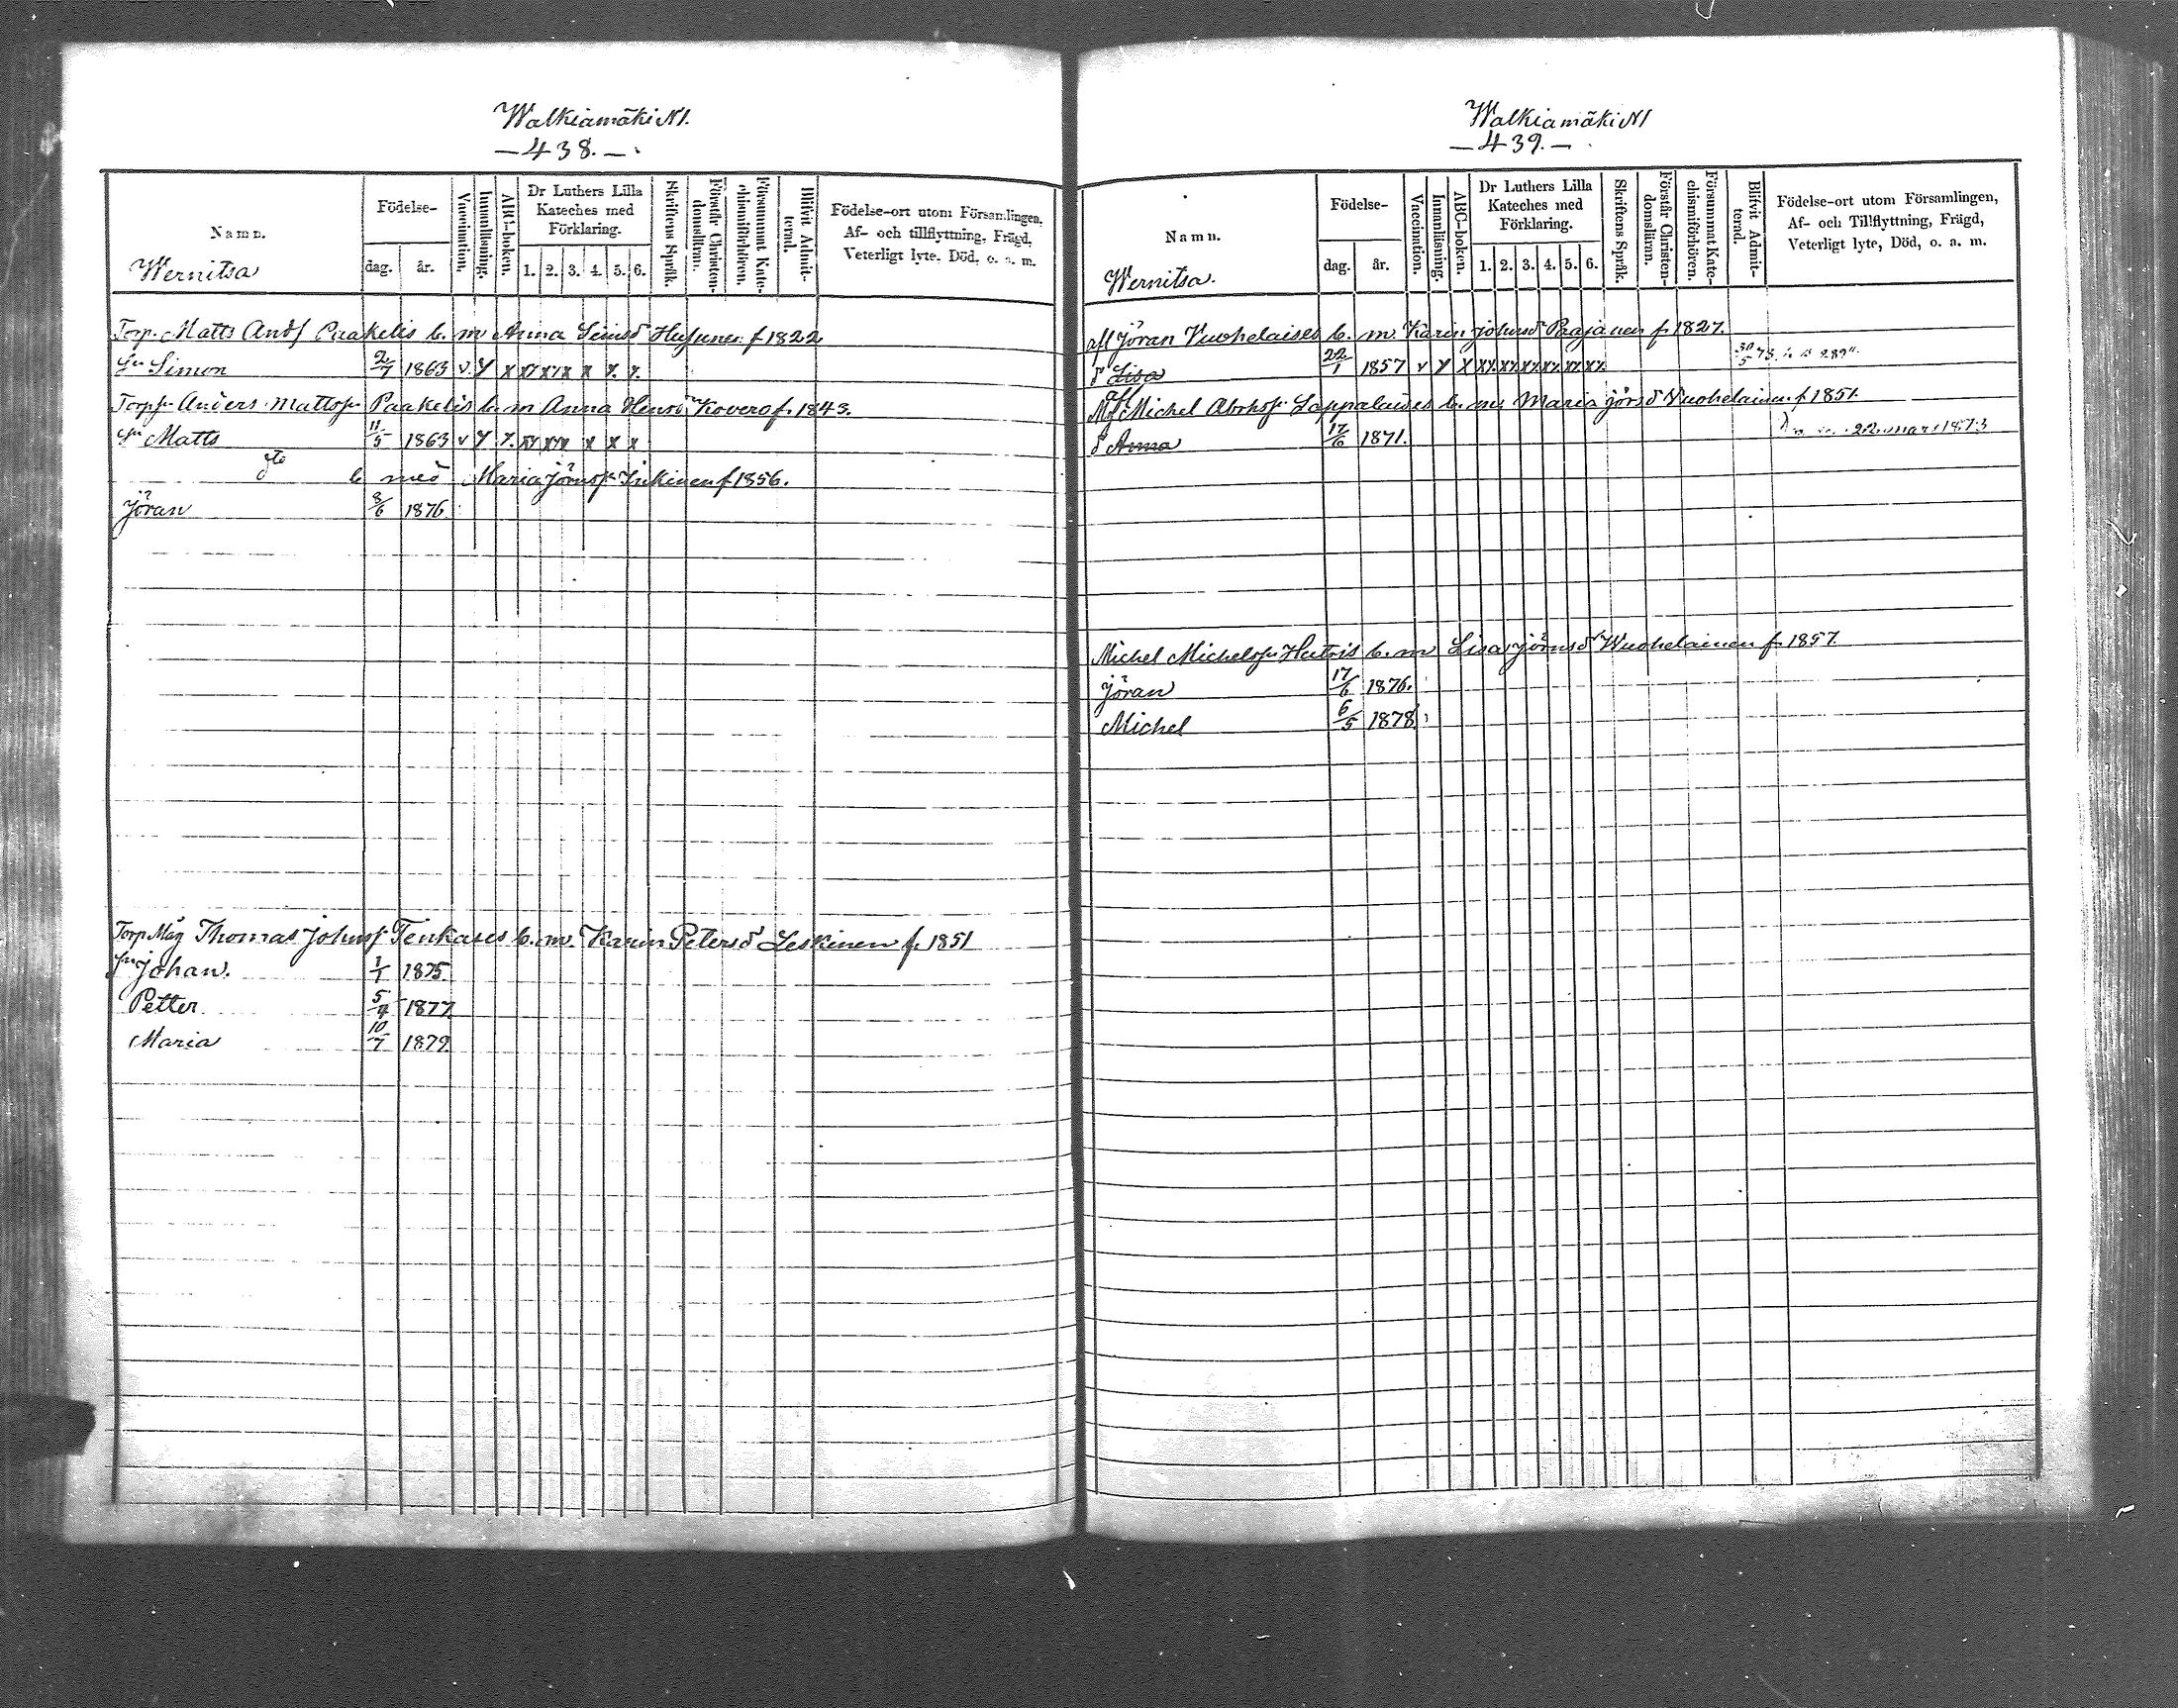 Walkiamäki N1.
— 438. —
Namn.
Wernitsa
Födelse-
dag. år.
Vaccination.
Innanläsning.
ABC-boken.
Dr Luthers Lilla Kateches med Förklaring.
1. 2. 3. 4. 5. 6.
Skriftens Språk.
Förstår Christendomsllärun.
Försummat Katechismiförhören.
Blifvit Admitterad.
Födelse-ort utom Församlingen,
Af- och tillflyttning, Frägd,
Veterligt lyte, Död, o. a. m.
Torp. Matts Andf Paakelis b. m Anna Simsd f 1822
Sn Simon 2/7 1863 v Y x xx xx x x x. x.
Torpf. Anders Mattsf. Paakelis b. m Anna Henrd Kovero f. 1843.
Sn Matts 11/5 1863 v Y x. xx xx x x x
dto b med Maria Jörnsf f 1856.
Jöran 8/6 1876
Torp. Måg Thomas Johnsf Tenkases b. m. Karin Petersd Leskinen f. 1851
Sn Johan. 1/1 1875
Petter 5/4 1877
Maria 10/7 1879
Walkiamäki N1
— 439. —
Namn.
Wernitsa.
Födelse-
dag. år.
Vaccination.
Innanläsning.
ABC-boken.
Dr Luthers Lilla Kateches med Förklaring.
1. 2. 3. 4. 5. 6.
Skriftens Språk.
Förstår Christendomslärun.
Försummat Katechismiförhören.
Blifvit Admitterad.
Födelse-ort utom Församlingen,
Af- och Tillflyttning, Frägd,
Veterligt lyte, Död, o. a. m.
afl Jöran Vuohelaises b. m. Karin Johnsd Paajanen f. 1827.
d Lisa 22/1 1857 v Y x xx xx xx xx xx xx 30/5 73.
Mf Michel Abrhsf. Lappalaises b. m. Maria Jörsd Vuohelainen f 1851.
d Anna 17/6 1871. 22 mars 1873
Michel Michelsf. Hutris b. m Lisa Jörnsd Wuohelainen f. 1857.
Jöran 17/6 1876.
Michel 6/5 1878